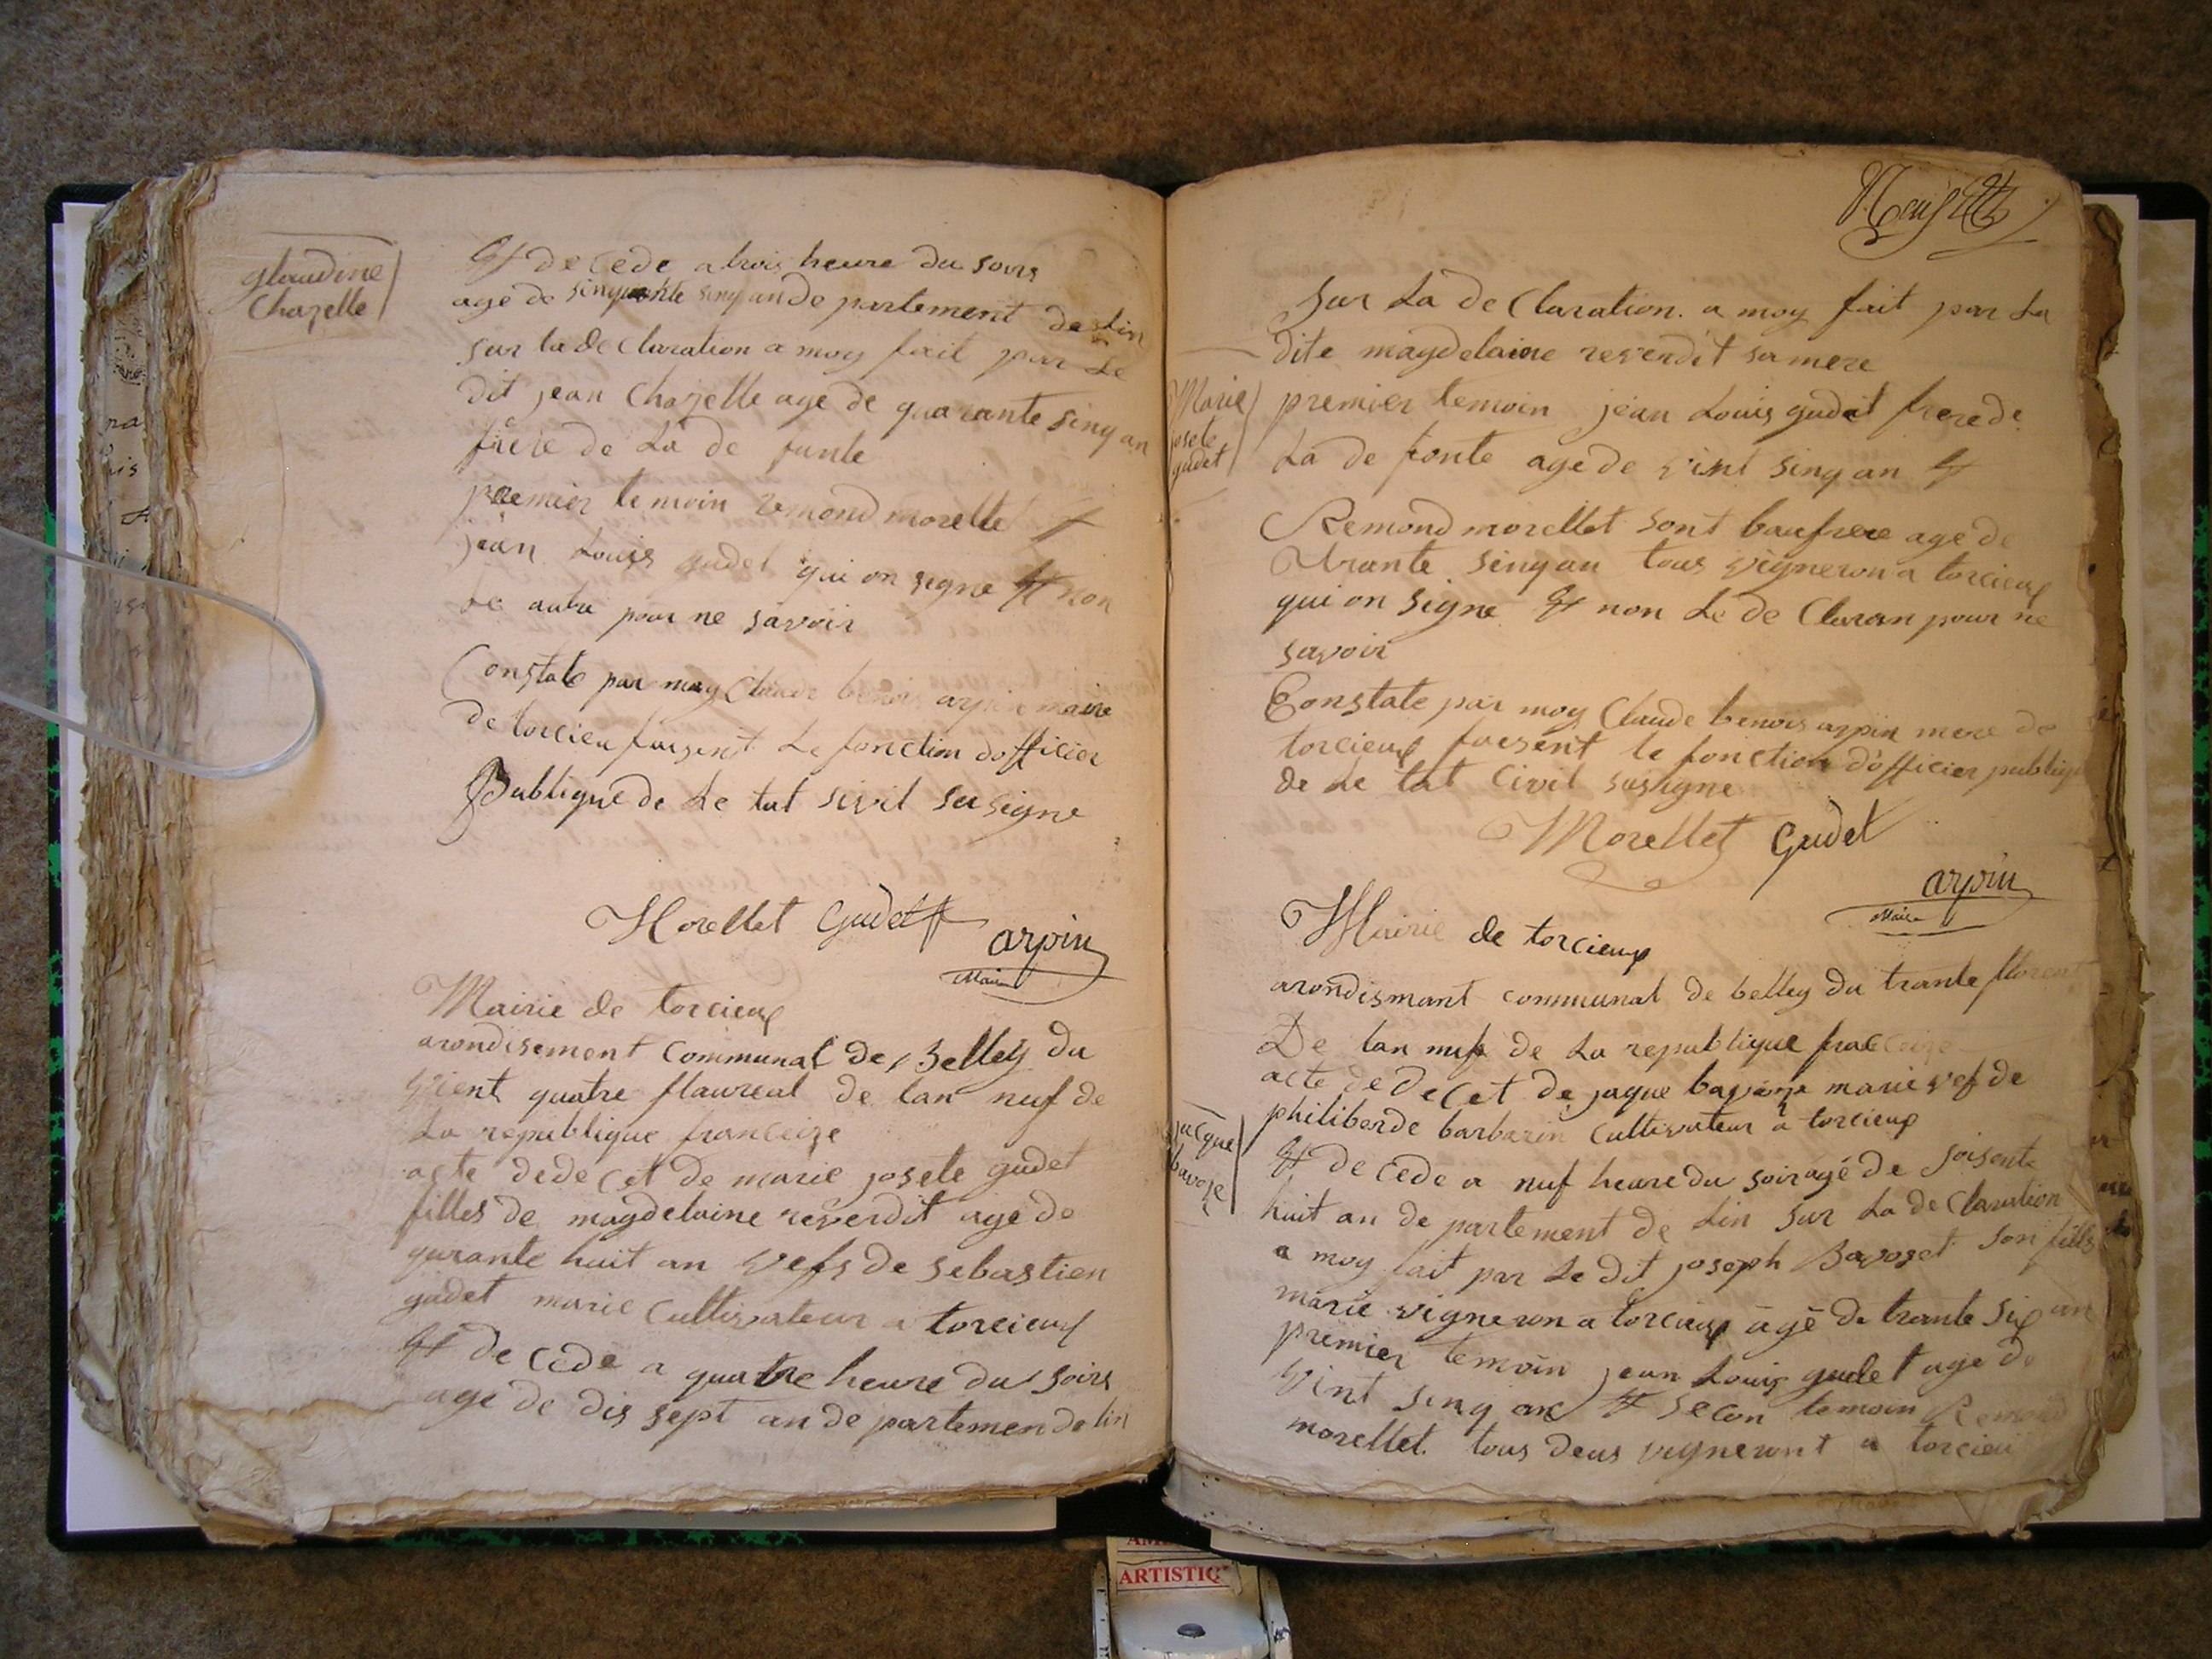 glaudine
Chazelle
Et de cede a trois heure du soirs
age de sinquante sinq an de partement de Lin
sur la de Claration a moy fait par Le
dit jean Chazelle age de quarante sinq an
frere de La de funte
premier temoin remond morellet et
jean Louis gudet qui on signe Et non
Le autre pour ne savoir
Constate par moy Claude benois arpin maire
de torcieu faisent Le fonction dofficier
Publique de Le tat sivil susigne
Morellet Gudet arpin
Maire
Mairie de torcieux
arondisement Communal de Belley du
vient quatre flaureal de lan nuf de
La republique franceize
acte dede cet de marie josete gudet
filles de magdelaine reverdit age de
qurante huit an vefs de sebastien
gudet marie Cultivateur a torcieux
Et de cede a quatre heure du soirs
age de dis sept an de partemen de lin
Sur La de Claration a moy fait par La
dite magdelaine reverdit sa mere
Marie
josete
gudet
premier temoin jean Louis gudet frere de
La de fonte age de vint sinq an Et
Remond morellet sont baufrere age de
trante sinq an tous vigneron a torcieux
qui on signe Et non Le de Claran pour ne
savoir
Constate par moy Claude benois arpin mere de
torcieux faesent le fonction dofficier publiq
de Le tat Civil susigne
Morellet Gudet
arpin
Maire
Mairie de torcieux
arondismant communal de belley du trante
De lan nuf de La republique
acte de de cet de jaque bavoze marie vef de
philiberde barbarin Cultivateur a torcieux
jacque
bavoze
Et de cede a nuf heure du soir agé de soisente
huit an de partement de Lin sur La de Claration
a moy fait par Le dit joseph Bavozet son fills
marie vigneron a torcieux agé de trante six an
premier temoin jean Louis gudet age de
vint sinq an Et secon temoin Remond
morellet tous deus vigneront a torcieu
ARTISTIQ